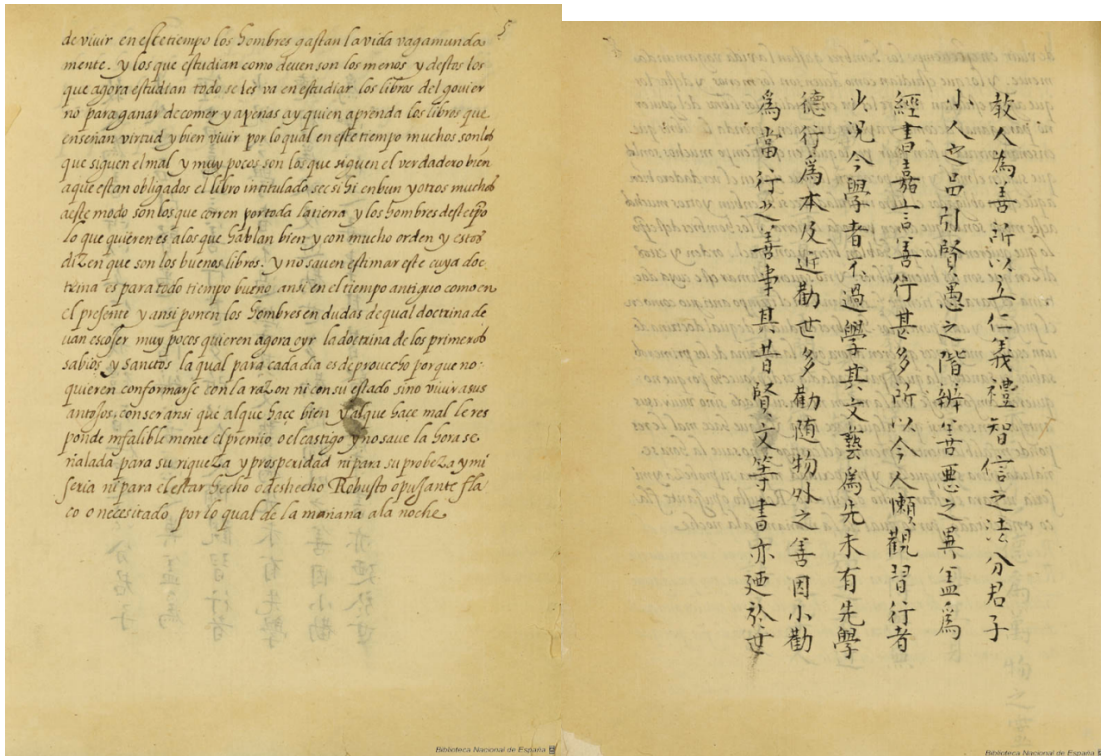 5
de vivir en este tiempo los hombres gastan la vida vagamunda
mente. y los que estudian como deven son los menos y destos los
que agora estudian todo se les va en estudiar los libros del govier
no para ganar de comer y apenas ay quien aprenda los libros que
enseñan virtud y bien vivir por lo qual en este tiempo muchos son los
que siguen el mal y muy pocos son los que siguen el verdadero bien
aque estan obligados el libro intitulado sec si hi enbun y otros muchos
a este modo son los que corren por toda la tierra y los hombres deste tpõ
lo que quieren es a los que hablan bien y con mucho orden y estos
dizen que son los buenos libros. y no saven estimar este cuya doc
trina es para todo tiempo bueno ansi en el tiempo antiguo como en
el presente y ansi ponen los hombres en dudas de qual doctrina de
uan escojer muy pocos quieren agora oyr la doctrina de los primeros
sabios y sanctos la qual para cada dia es de provecho porque no
quieren conformarse con la razon ni con su estado sino vivir a sus
antojos, con ser ansi que al que haçe bien y al que haçe mal le res
ponde infalible mente el premio o el castigo y no save la hora se
ñalada para su riqueza y prosperidad ni para su probeza y mi
seria ni para el estar hecho o deshecho Robusto o pujante fla
co o necesitado por lo qual de la mañana a la noche
Biblioteca Nacional de España
教人為善所以立仁義禮智信之法分君子
小人之品引賢愚之階辨善惡之異盖為
經書嘉言善行甚多所以今人懶觀習行者
少况今學者不過學其文藝為先未有先學
德行為本及近勸世多勸随物外之善因小勸
為當行之善事其昔賢文等書亦廼於世
Biblioteca Nacional de España